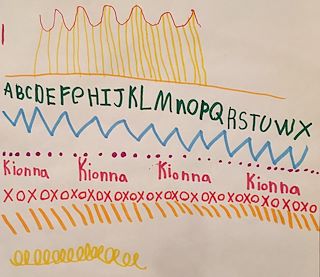 ABCDEFGHIJKLMnOPQRSTUWX
Kionna Kionna Kionna Kionna
XOXOXOXOXOXOXOXOXOXOXOXOXOXOXO